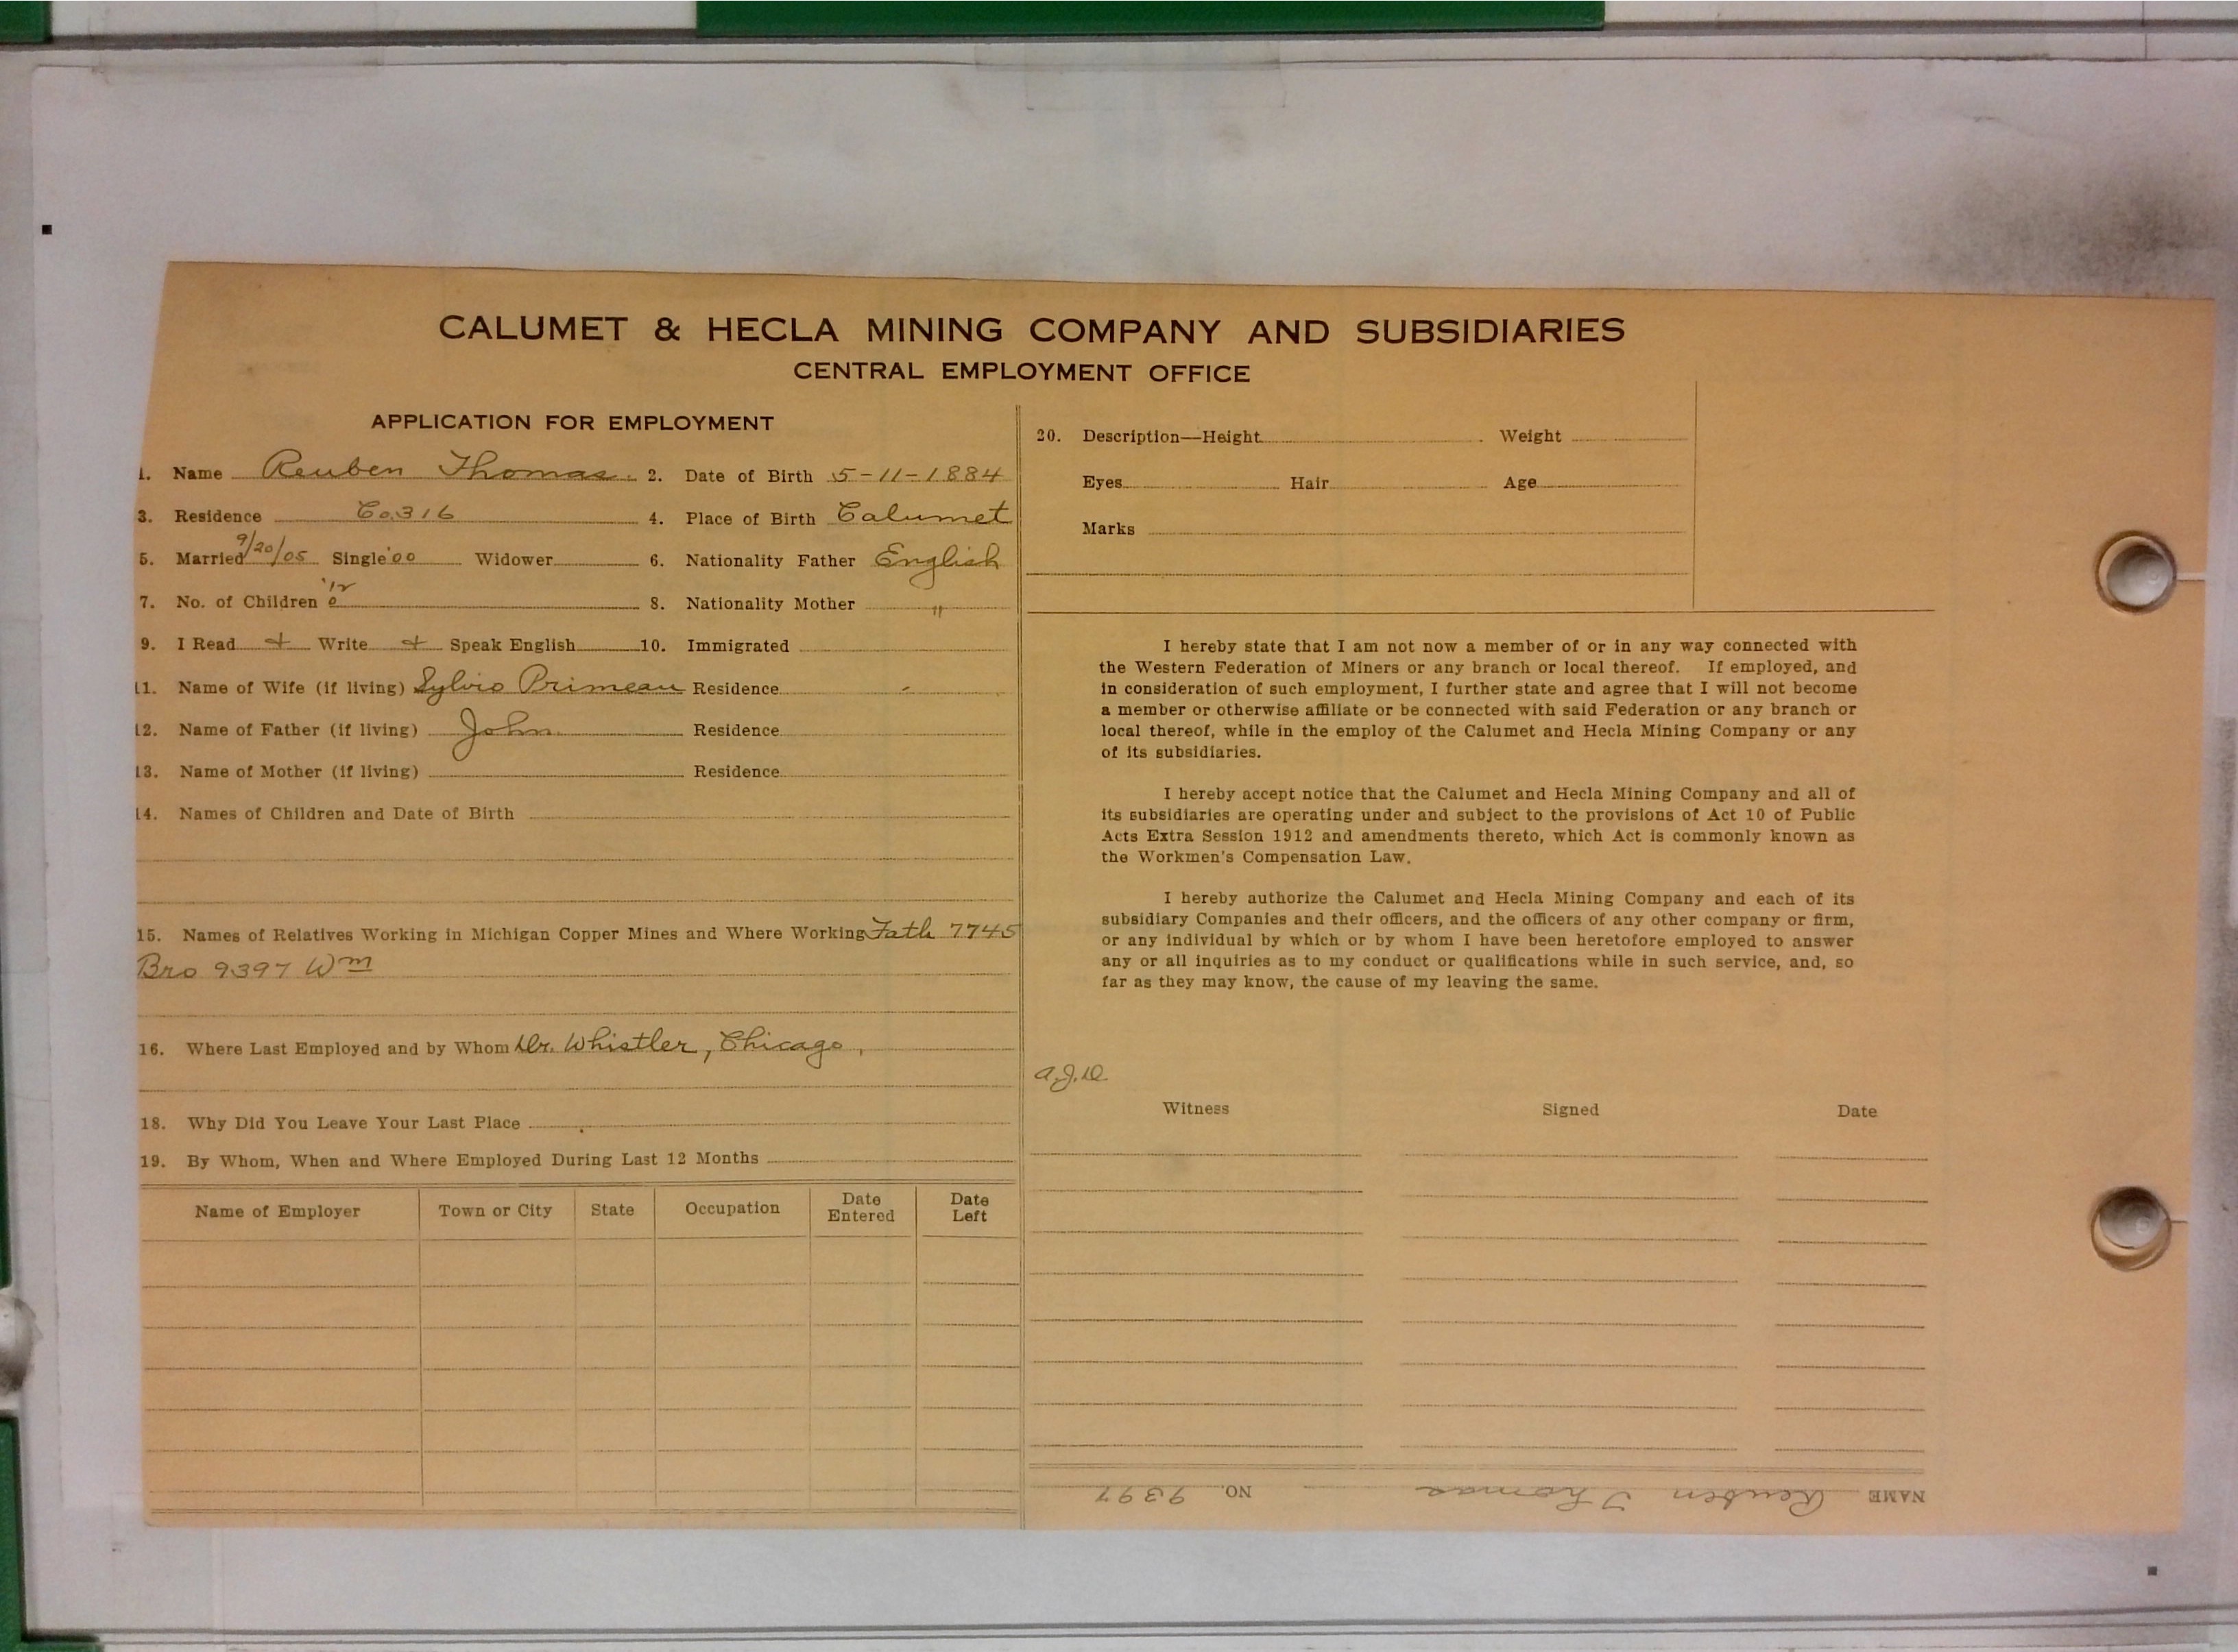 CALUMET & HECLA MINING COMPANY AND SUBSIDIARIES
CENTRAL EMPLOYMENT OFFICE
APPLICATION FOR EMPLOYMENT
1. Name Reuben Thomas. 2. Date of Birth 5-11-1884
3. Residence Co. 316 4. Place of Birth Calumet
5. Married 9/20/05 Single '00 Widower 6. Nationality Father English
7. No. of Children '12 0 8. Nationality Mother "
9. I Read + Write + Speak English 10. Immigrated
11. Name of Wife (if living) Sylvio Primeau Residence
12. Name of Father (if living) John Residence
13. Name of Mother (if living) Residence
14. Names of Children and Date of Birth
15. Names of Relatives Working in Michigan Copper Mines and Where Working Fath 7745
Bro 9397 Wm
16. Where Last Employed and by Whom Dr. Whistler, Chicago,
18. Why Did You Leave Your Last Place
19. By Whom, When and Where Employed During Last 12 Months
Name of Employer Town or City State Occupation Date Entered Date Left
20. Description—Height Weight
Eyes Hair Age
Marks
I hereby state that I am not now a member of or in any way connected with
the Western Federation of Miners or any branch or local thereof. If employed, and
in consideration of such employment, I further state and agree that I will not become
a member or otherwise affiliate or be connected with said Federation or any branch or
local thereof, while in the employ of the Calumet and Hecla Mining Company or any
of its subsidiaries.
I hereby accept notice that the Calumet and Hecla Mining Company and all of
its subsidiaries are operating under and subject to the provisions of Act 10 of Public
Acts Extra Session 1912 and amendments thereto, which Act is commonly known as
the Workmen's Compensation Law.
I hereby authorize the Calumet and Hecla Mining Company and each of its
subsidiary Companies and their officers, and the officers of any other company or firm,
or any individual by which or by whom I have been heretofore employed to answer
any or all inquiries as to my conduct or qualifications while in such service, and, so
far as they may know, the cause of my leaving the same.
a.J.D.
Witness Signed Date
NAME Reuben Thomas NO. 9397